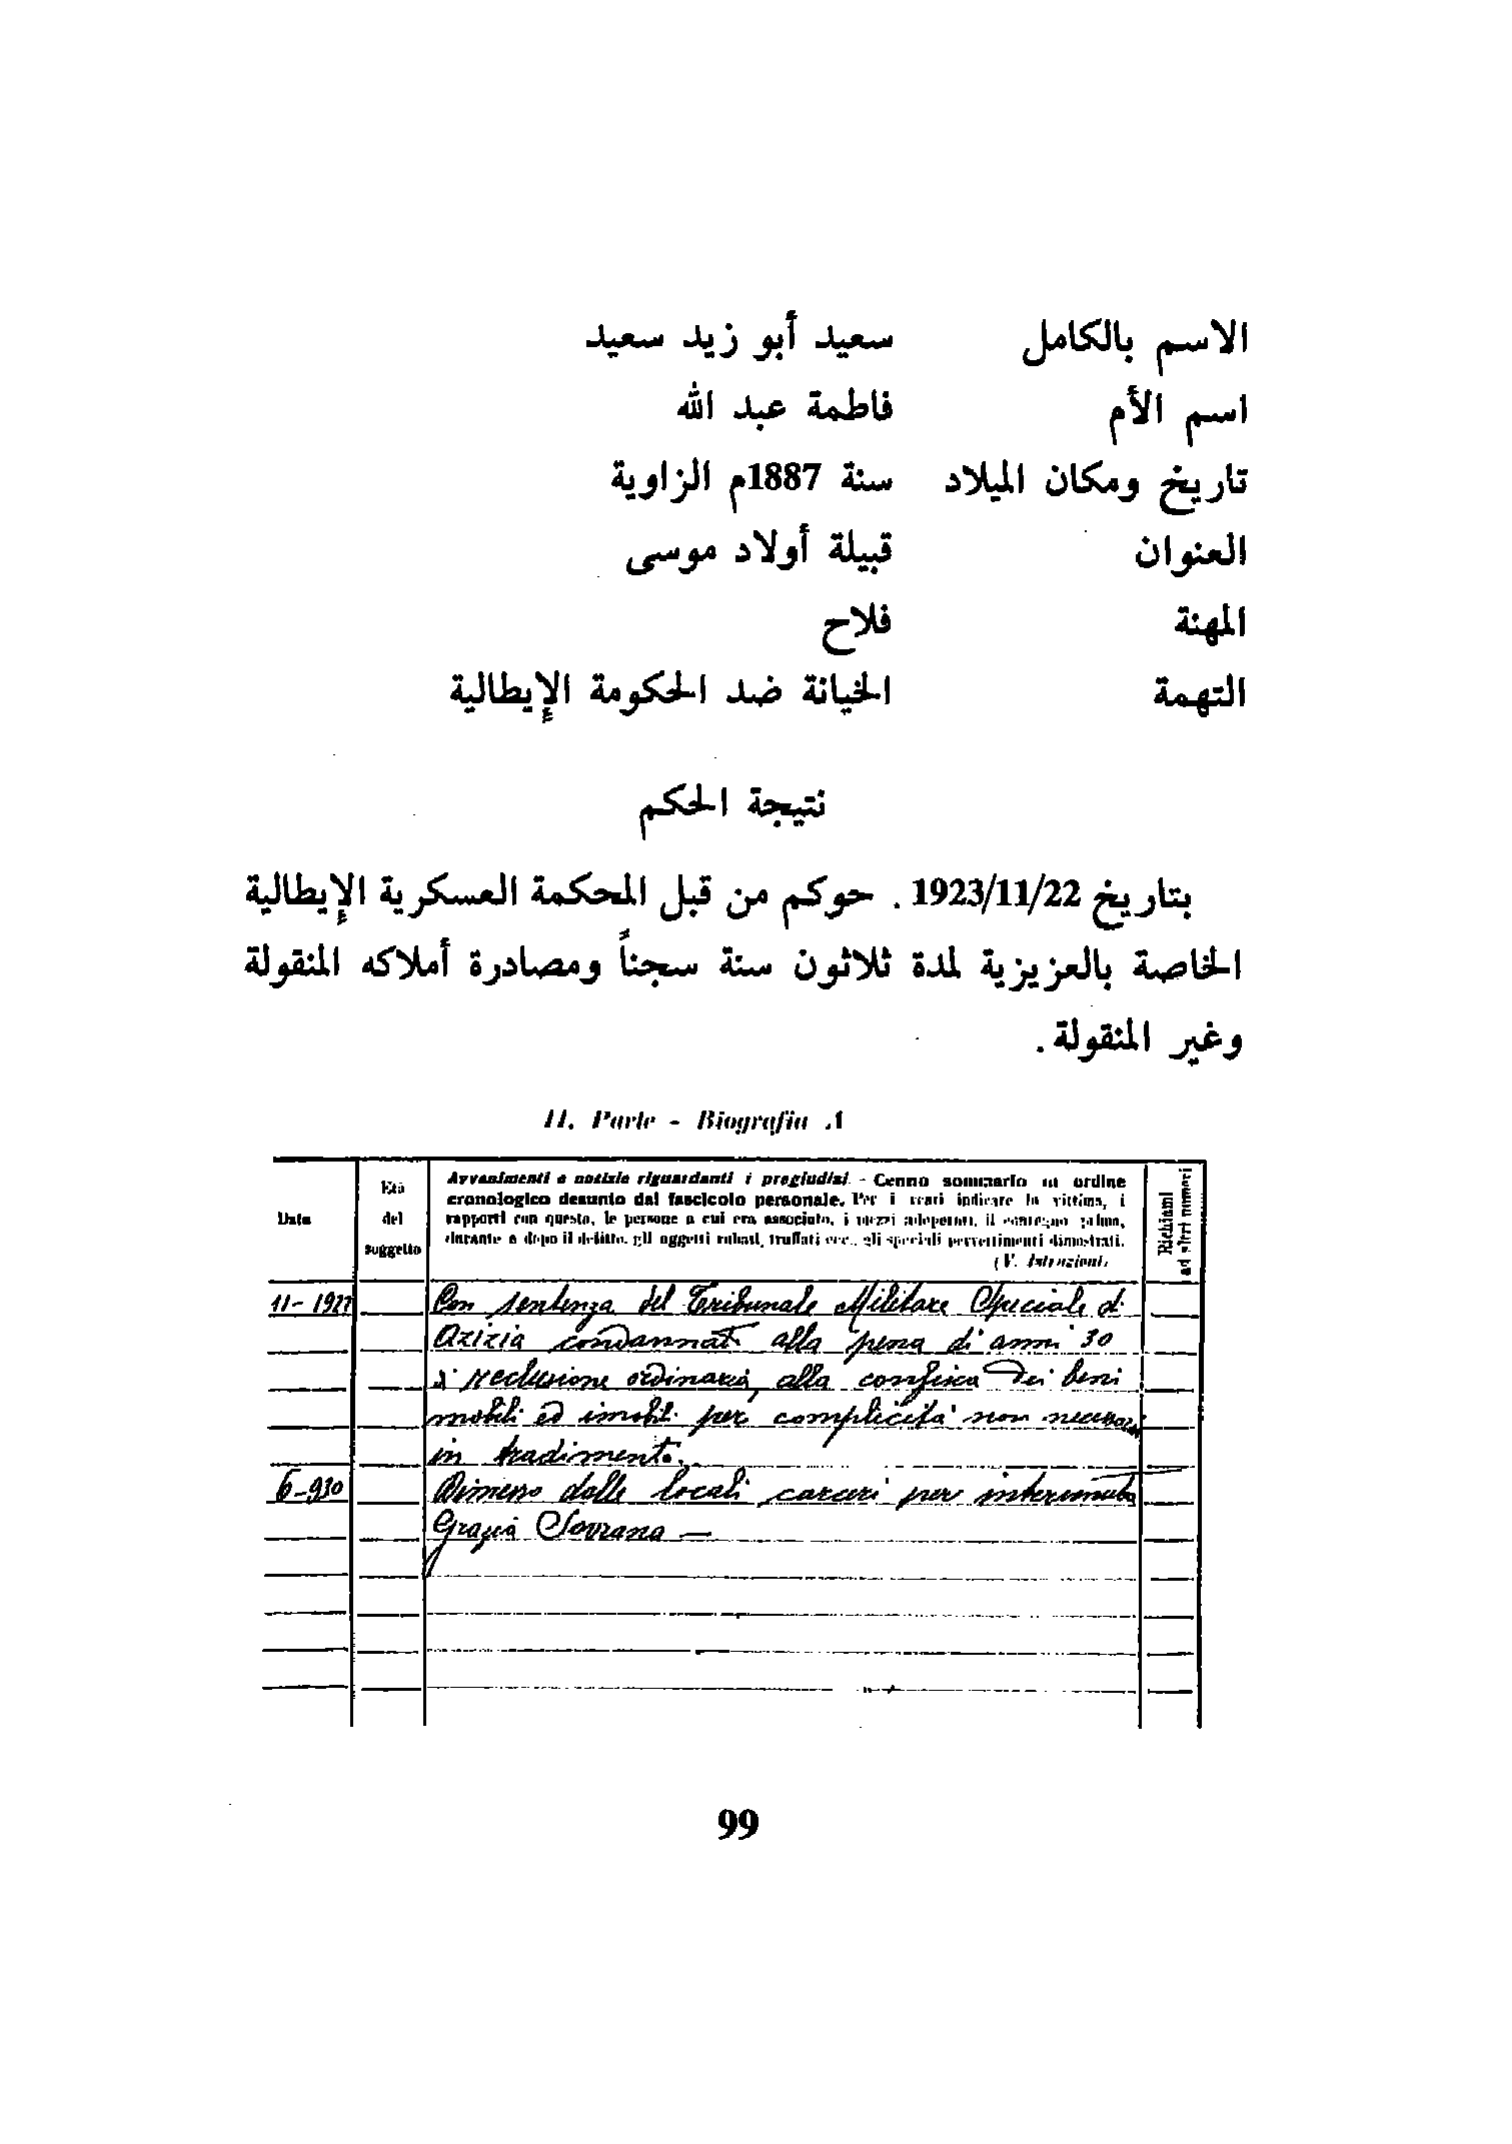 الاسم بالكامل سعيد أبو زيد سعيد
اسم الأم فاطمة عبد الله
تاريخ ومكان الميلاد سنة 1887م الزاوية
العنوان قبيلة أولاد موسى
المهنة فلاح
التهمة الخيانة ضد الحكومة الإيطالية
نتيجة الحكم
بتاريخ 1923/11/22 . حوكم من قبل المحكمة العسكرية الإيطالية
الخاصة بالعزيزية لمدة ثلاثون سنة سجناً ومصادرة أملاكه المنقولة
وغير المنقولة .
II. Parte - Biografia A
Data
Età
del
suggetto
Avvenimenti e notizie riguardanti i pregiudizi. - Cenno sommario in ordine
cronologico desunto dal fascicolo personale. Per i reati indicare la vittima, i
rapporti con questa, le persone a cui era associato, i mezzi adoperati, il contegno prima,
durante e dopo il delitto, gli oggetti rubati, truffati ecc., gli speciali pervertimenti dimostrati.
(V. Istruzioni)
Richiami
ad altri numeri
11-1927 Con sentenza del Tribunale Militare Speciale di
Azizia condannato alla pena di anni 30
di reclusione ordinaria, alla confisca dei beni
mobili ed imobili per complicità non
in tradimento.
6-930 Dimesso dalle locali carceri per
Grazia Sovrana —
99